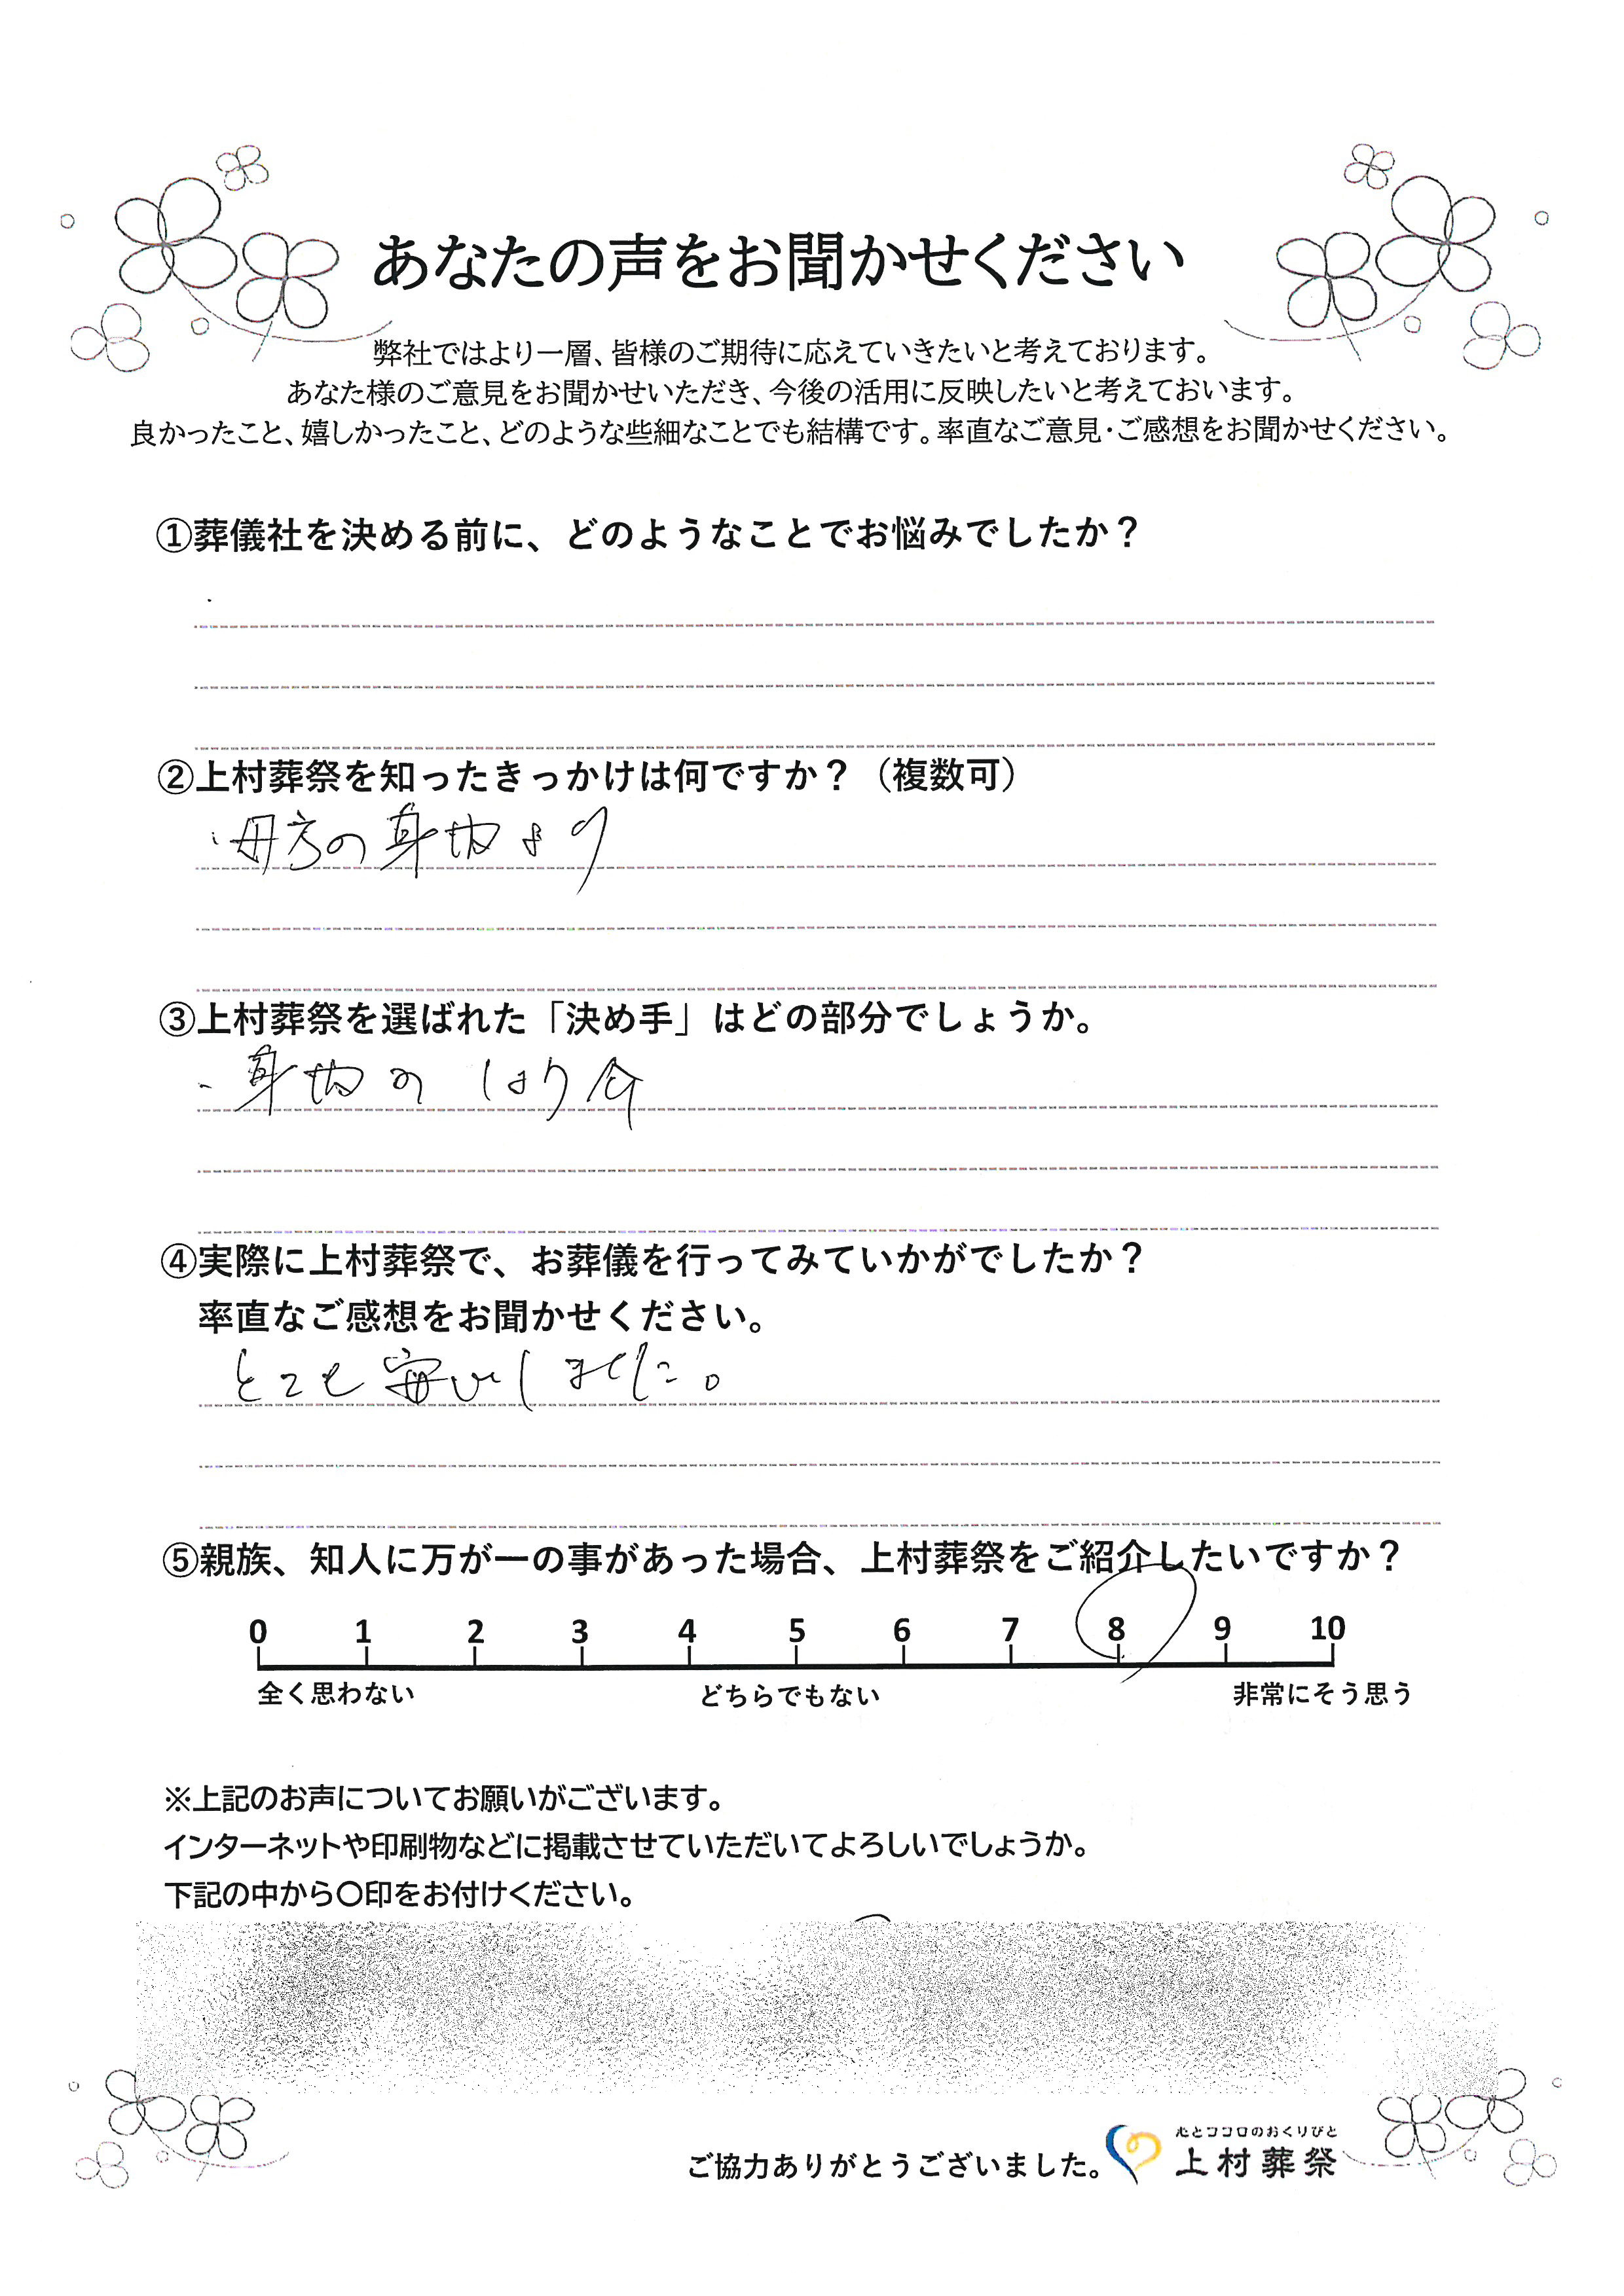 あなたの声をお聞かせください
弊社ではより一層、皆様のご期待に応えていきたいと考えております。
あなた様のご意見をお聞かせいただき、今後の活用に反映したいと考えておいます。
良かったこと、嬉しかったこと、どのような些細なことでも結構です。率直なご意見・ご感想をお聞かせください。
①葬儀社を決める前に、どのようなことでお悩みでしたか？
②上村葬祭を知ったきっかけは何ですか？（複数可）
・母方の身内より
③上村葬祭を選ばれた「決め手」はどの部分でしょうか。
・身内の
④実際に上村葬祭で、お葬儀を行ってみていかがでしたか？
率直なご感想をお聞かせください。
とても安心しました。
⑤親族、知人に万が一の事があった場合、上村葬祭をご紹介したいですか？
0 1 2 3 4 5 6 7 8 9 10
全く思わない どちらでもない 非常にそう思う
※上記のお声についてお願いがございます。
インターネットや印刷物などに掲載させていただいてよろしいでしょうか。
下記の中から〇印をお付けください。
心とココロのおくりびと
ご協力ありがとうございました。 上村葬祭